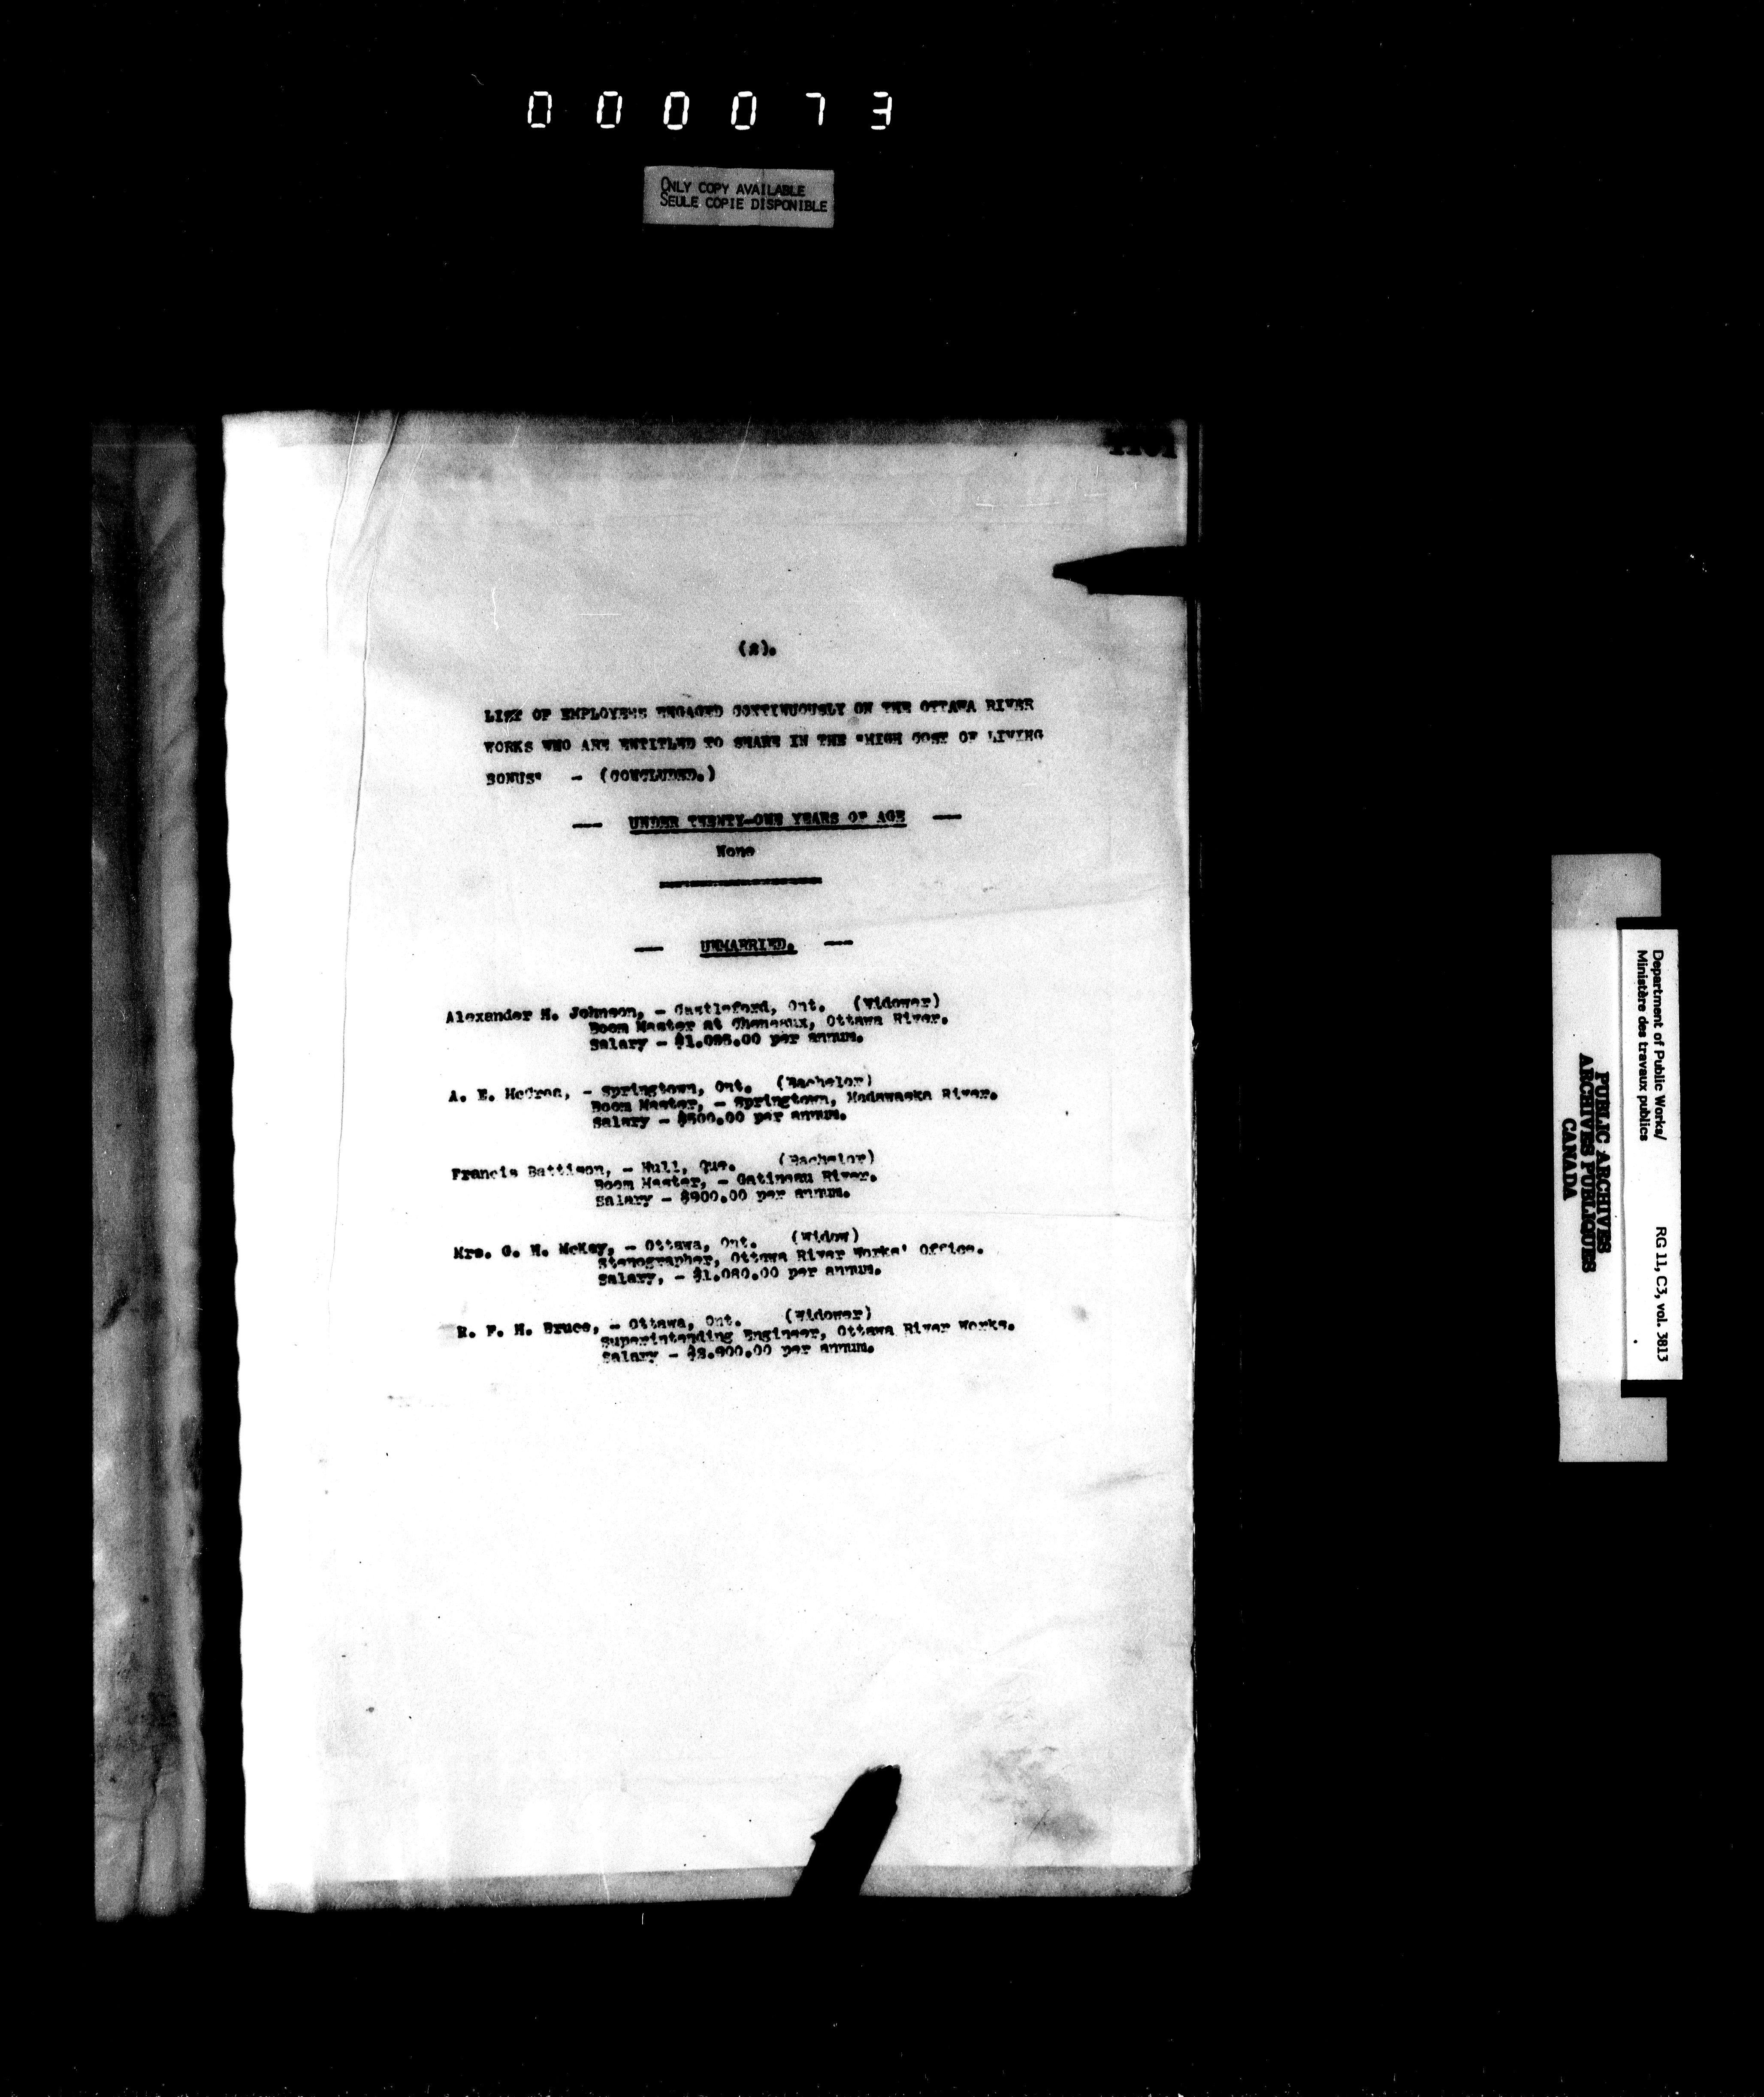 0 0 0 0 7 3
ONLY COPY AVAILABLE
SEULE COPIE DISPONIBLE
(2).
LIST OF EMPLOYEES ENGAGED CONTINUOUSLY ON THE OTTAWA RIVER
WORKS WHO ARE ENTITLED TO SHARE IN THE "HIGH COST OF LIVING
BONUS" - (CONCLUDED.)
— UNDER TWENTY-ONE YEARS OF AGE —
None
— UNMARRIED. —
Alexander H. Johnson, - Castleford, Ont. (Widower)
Boom Master at Cheneaux, Ottawa River.
Salary - per annum.
A. E. - Springtown, Ont. (Bachelor)
Boom Master, - Springtown, Madawaska River.
Salary - $500.00 per annum.
Francis Battison, - Hull, Que. (Bachelor)
Boom Master, - Gatineau River.
Salary - $900.00 per annum.
Mrs. G. H. McKay, - Ottawa, Ont. (Widow)
Stenographer, Ottawa River Works' Office.
Salary, - $1.080.00 per annum.
F. H. Bruce, - Ottawa, Ont. (Widower)
Superintending Engineer, Ottawa River Works.
Salary - per annum.
Department of Public Works/
Ministère des travaux publics
RG 11, C3, vol. 3813
PUBLIC ARCHIVES
ARCHIVES PUBLIQUES
CANADA